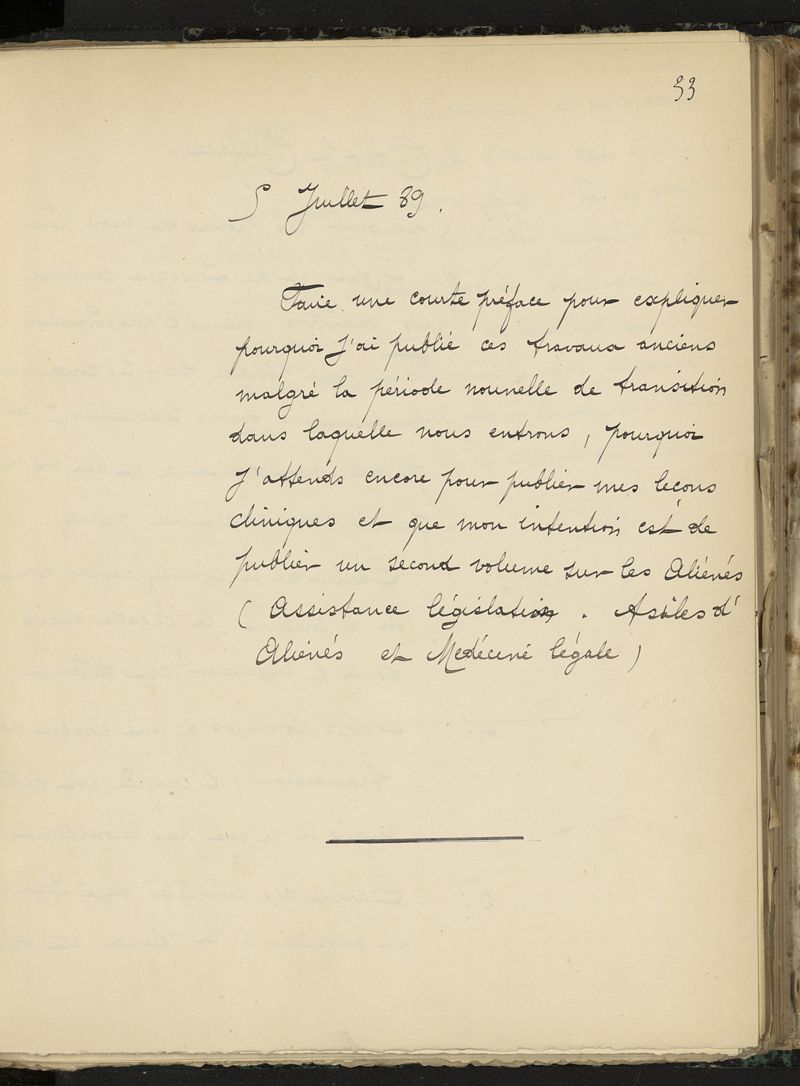 33
5 Juillet 89.
Faire une courte préface pour expliquer
pourquoi j'ai publié ces travaux anciens
malgré la période nouvelle de transition
dans laquelle nous entrons, pourquoi
j'attends encore pour publier mes leçons
cliniques et que mon intention est de
publier un second volume sur les Aliénés
(Assistance législation. Asiles d'
Aliénés et Médecine légale)